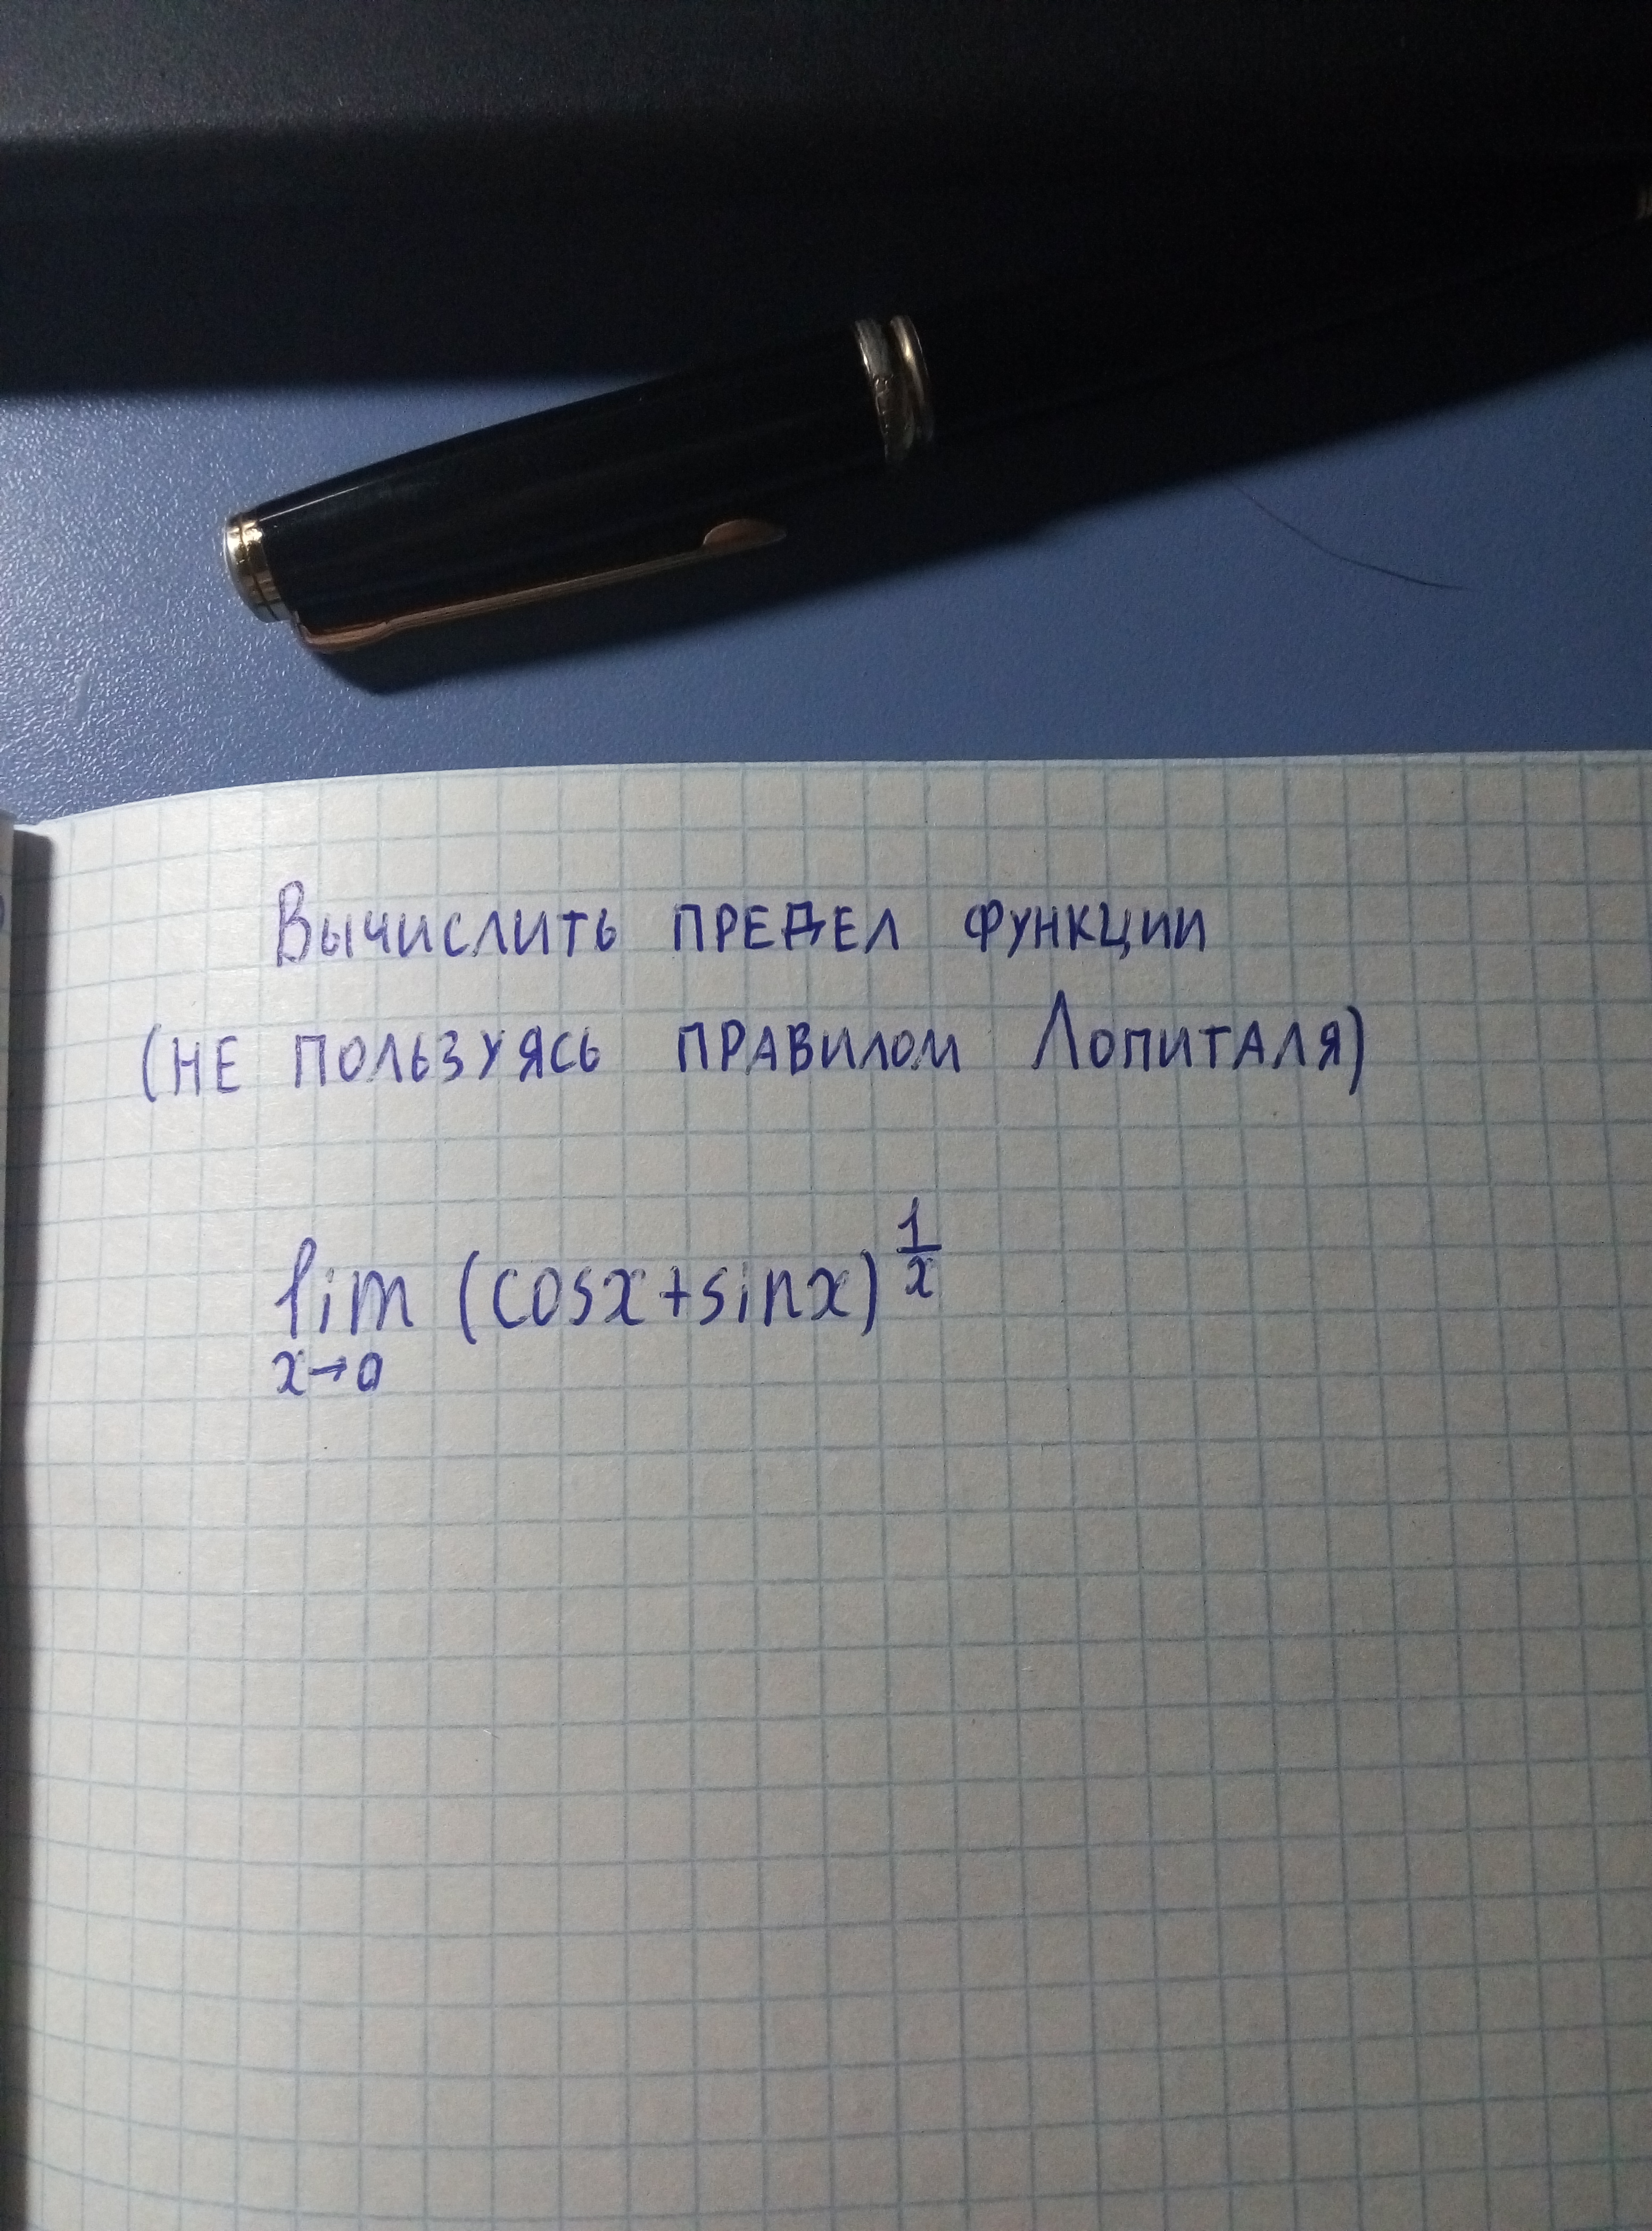 Вычислить предел функции
(не пользуясь правилом Лопиталя)
lim (cosx+sinx)^{\frac{1}{x}}
x→0